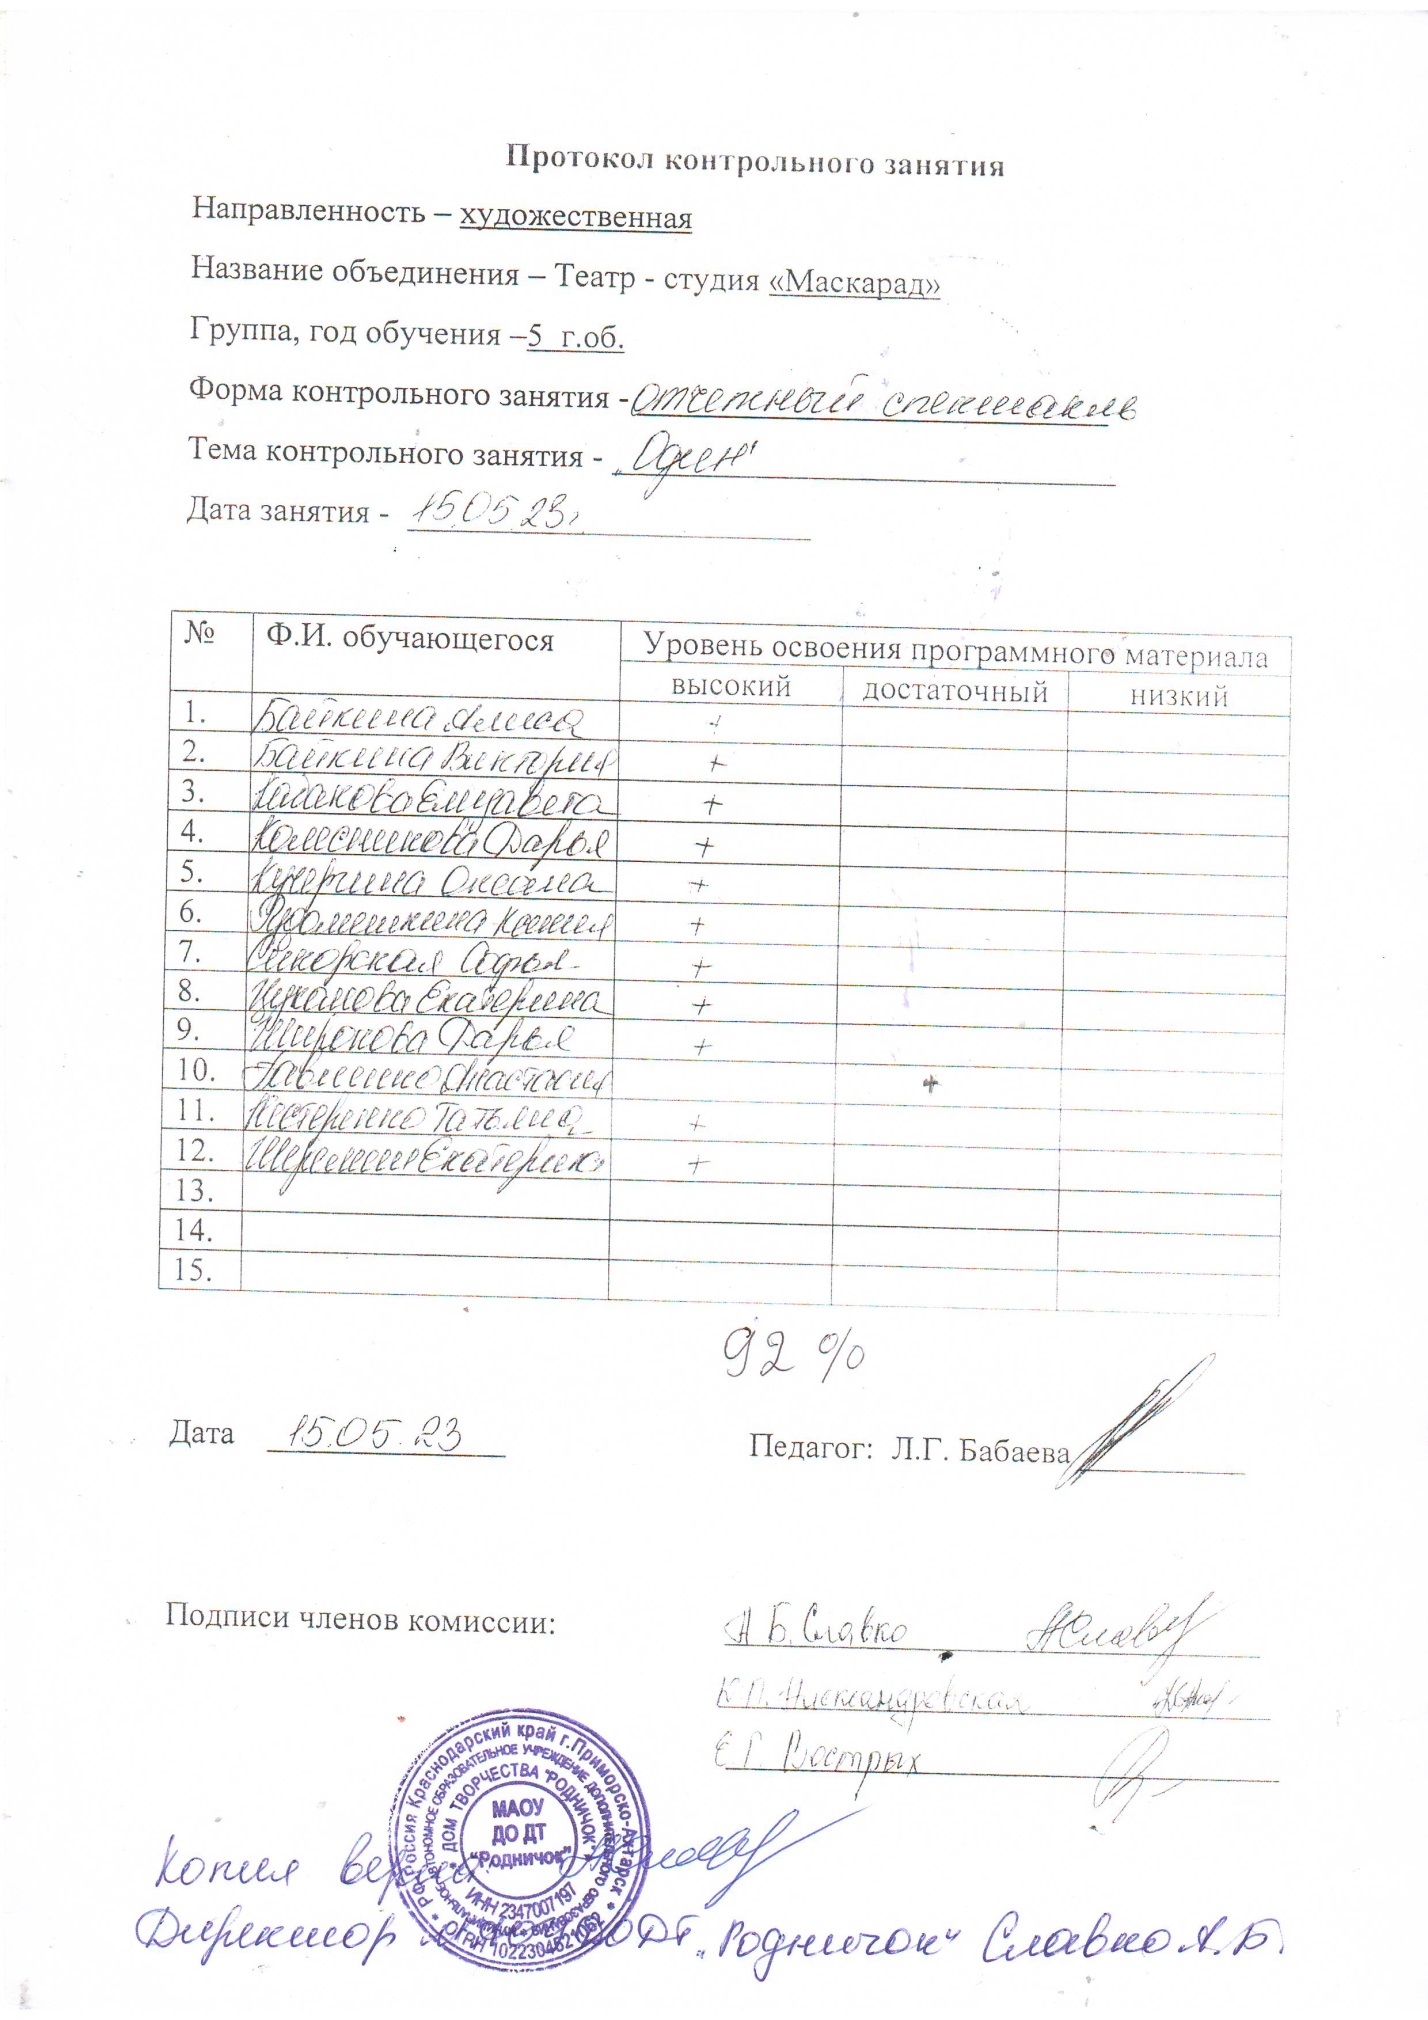 Протокол контрольного занятия
Направленность – художественная
Название объединения – Театр - студия «Маскарад»
Группа, год обучения –5 г.об.
Форма контрольного занятия - отчетный спектакль
Тема контрольного занятия - „Один"
Дата занятия - 15.05.23г.
№ Ф.И. обучающегося Уровень освоения программного материала
высокий достаточный низкий
1. Байкина Алиса +
2. Байкина Виктория +
3. Казакова Елизавета +
4. Колесникова Дарья +
5. Оксана +
6. Ксения +
7. Сикорская Софья +
8. Цуканова Екатерина +
9. Широкова Дарья +
10. Павленко Анастасия +
11. Нестеренко Татьяна +
12. Екатерина +
13.
14.
15.
92 %
Дата 15.05.23
Педагог: Л.Г. Бабаева
Подписи членов комиссии:
А.Б. Славко
К.П. Александровская
Е.Г. Вострых
РФ Россия Краснодарский край г.Приморско-Ахтарск
АВТОНОМНОЕ ОБРАЗОВАТЕЛЬНОЕ УЧРЕЖДЕНИЕ ДОПОЛНИТЕЛЬНОГО ОБРАЗОВАНИЯ
ДОМ ТВОРЧЕСТВА "РОДНИЧОК"
МАОУ
ДО ДТ
"Родничок"
ИНН 2347007197
Копия верна
Директор ДО ДТ „Родничок" Славко А.Б.